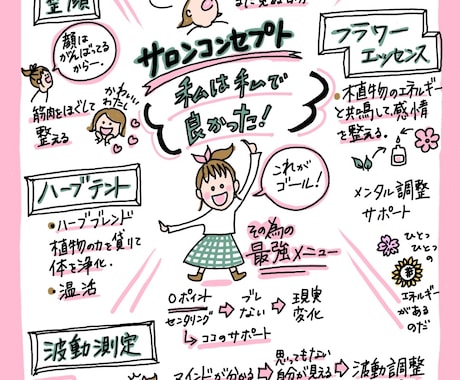 整顔
サロンコンセプト
私は私で
良かった！
顔は
がんばってる
から…
かわいい
わたし
筋肉をほぐして
整える
フラワー
エッセンス
・木直物のエネルギー
と共鳴して感情
を整える。
メンタル調整
サポート
ひとつ
ひとつの
エネルギー
がある
のだ
これが
ゴール！
ハーブテント
・ハーブブレンド
植物の力を貸りて
体を浄化.
・温活
その為の
最強メニュー
0ポイント
センタリング
ブレ
ない
現実
変化
ココのサポート
波動測定
マインドが分かる
思ってもない
自分が見える
波動調整